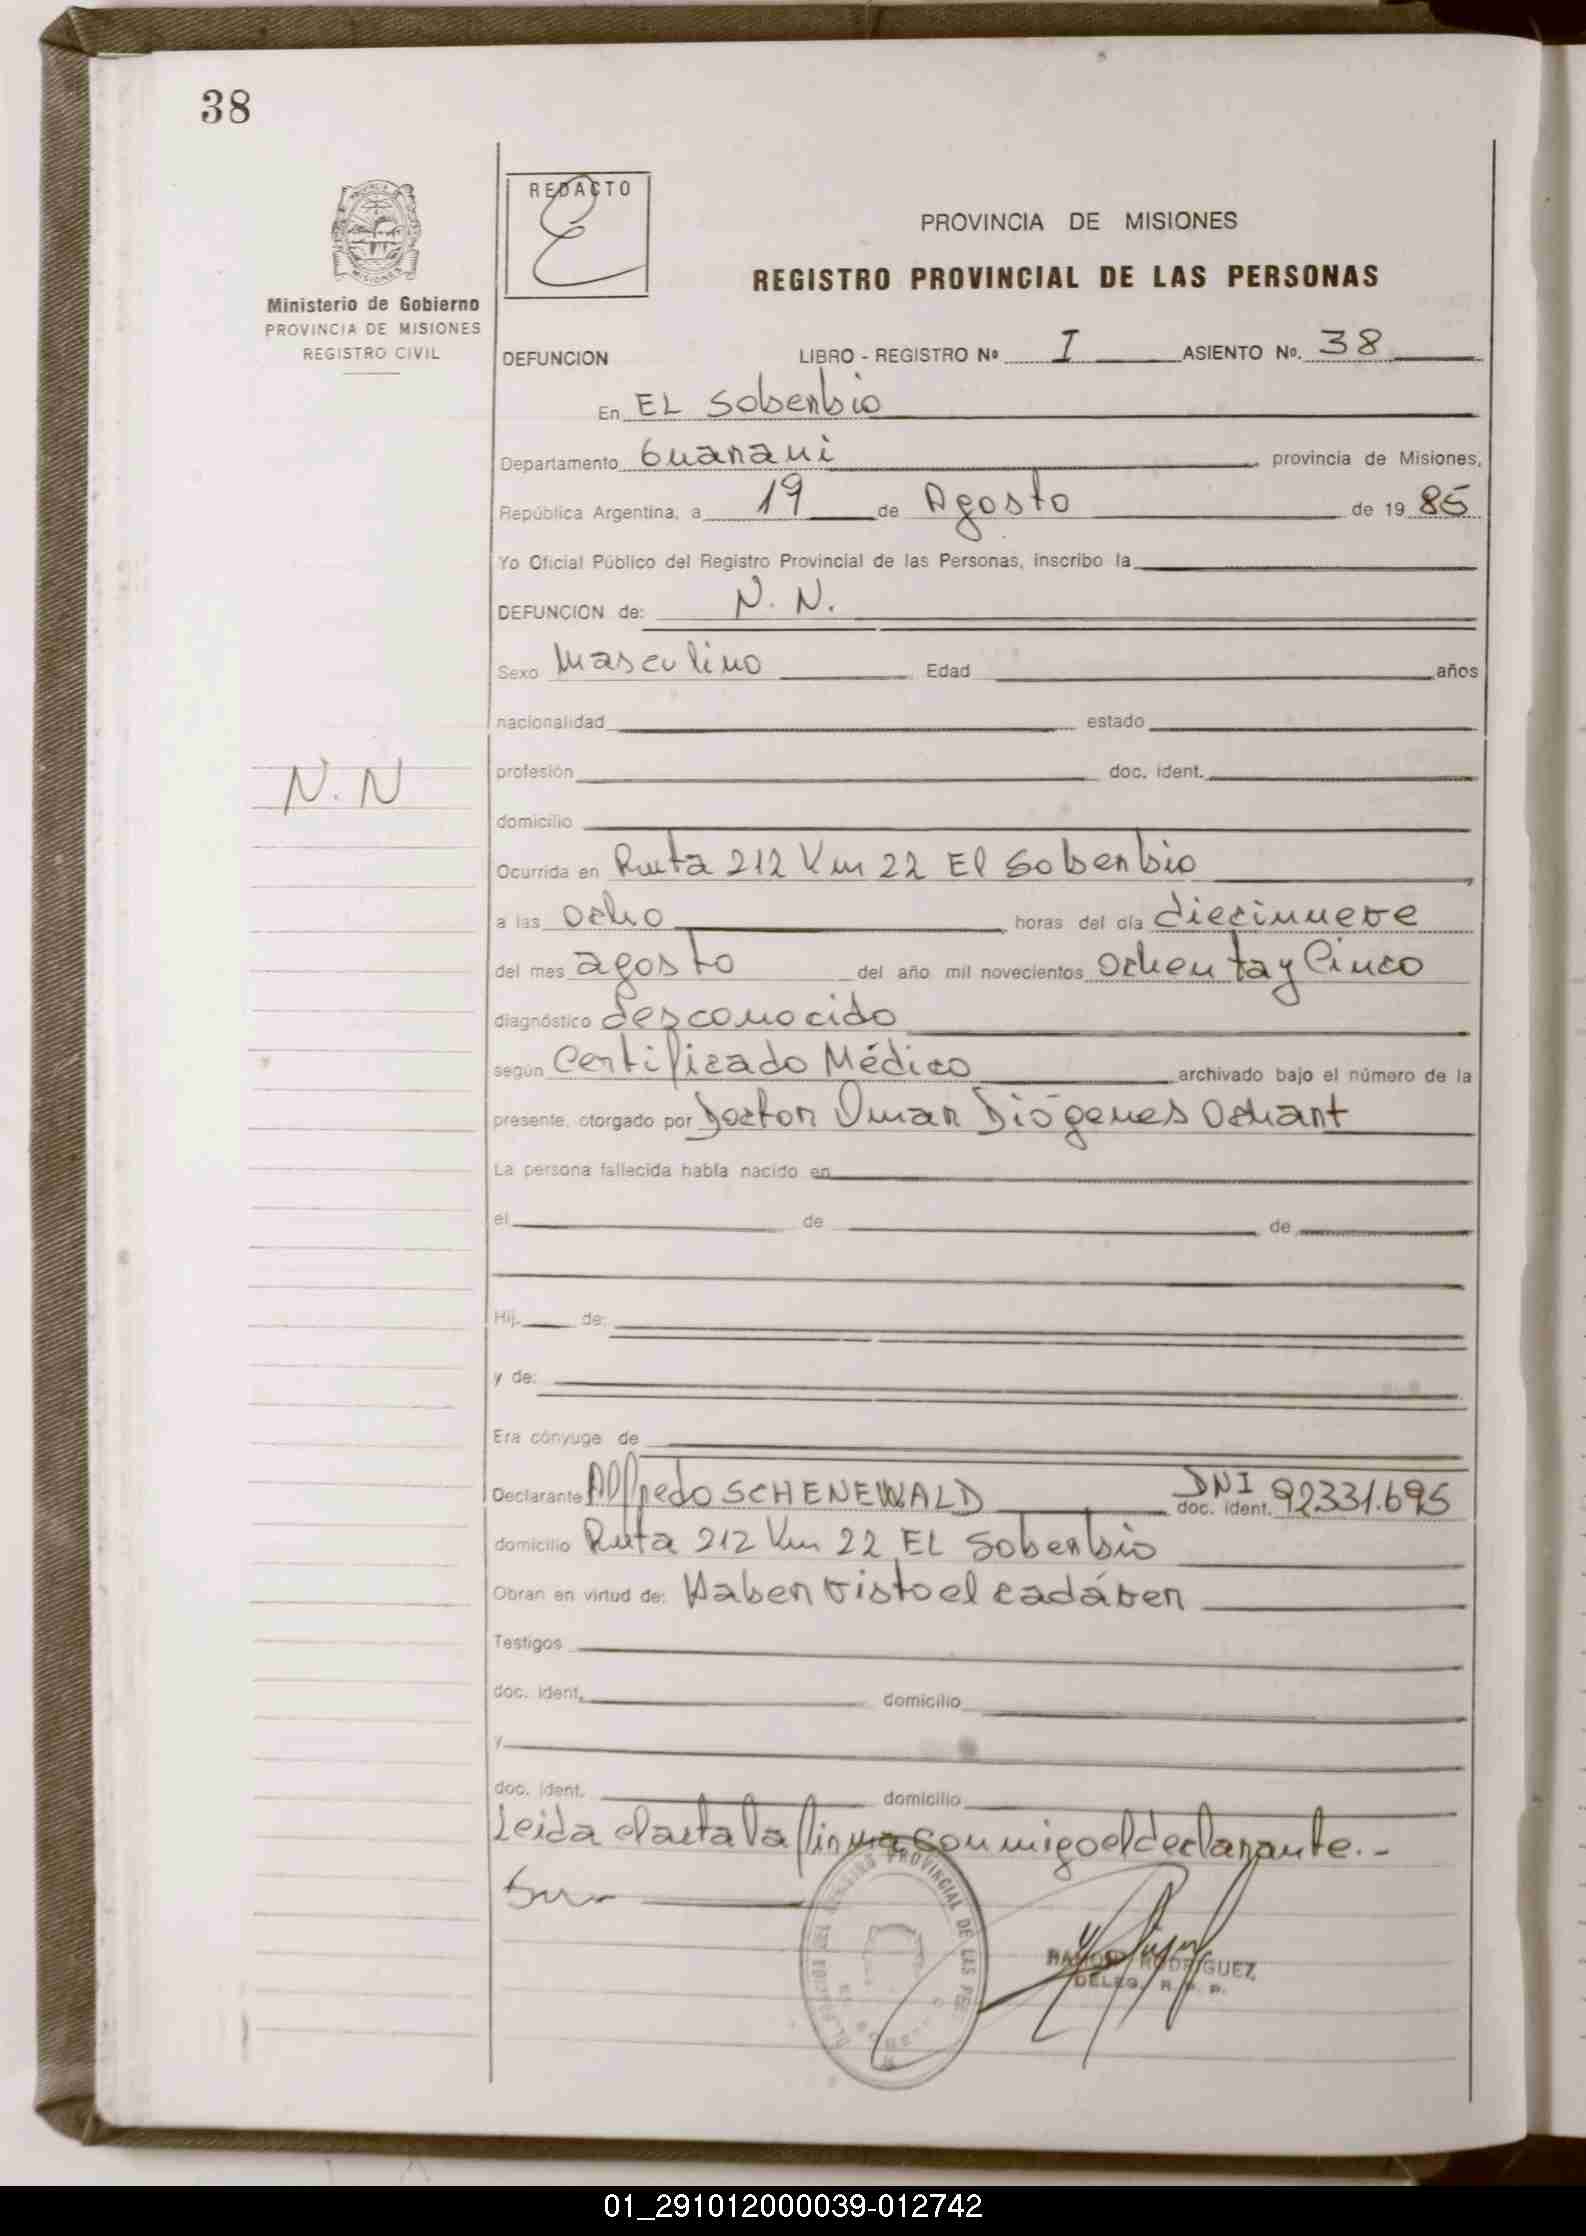 38
REDACTO
PROVINCIA DE MISIONES
REGISTRO PROVINCIAL DE LAS PERSONAS
Ministerio de Gobierno
PROVINCIA DE MISIONES
REGISTRO CIVIL
DEFUNCION LIBRO - REGISTRO Nº I ASIENTO Nº. 38
En EL Soberbio
Departamento Guarani provincia de Misiones,
República Argentina, a 19 de Agosto de 19 85
Yo Oficial Público del Registro Provincial de las Personas, inscribo la
DEFUNCION de: N. N.
Sexo Masculino Edad años
nacionalidad estado
N. N
profesión doc. ident.
domicilio
Ocurrida en Ruta 212 Km 22 El Soberbio
a las ocho horas del día diecinueve
del mes agosto del año mil novecientos ochenta y Cinco
diagnóstico desconocido
según Certificado Médico archivado bajo el número de la
presente, otorgado por Doctor Omar Diógenes Ochant
La persona fallecida había nacido en
el de de
Hij. de:
y de:
Era cónyuge de
Declarante Alfredo SCHENEWALD doc. ident. DNI 92331.695
domicilio Ruta 212 Km 22 EL Soberbio
Obran en virtud de: Haber visto el cadáver
Testigos
doc. ident. domicilio
y
doc. ident. domicilio
Leida el acta la firma conmigo el declarante.-
PROVINCIAL DE LAS
RAMON RODRIGUEZ
DELEG. R. P. P.
01_291012000039-012742